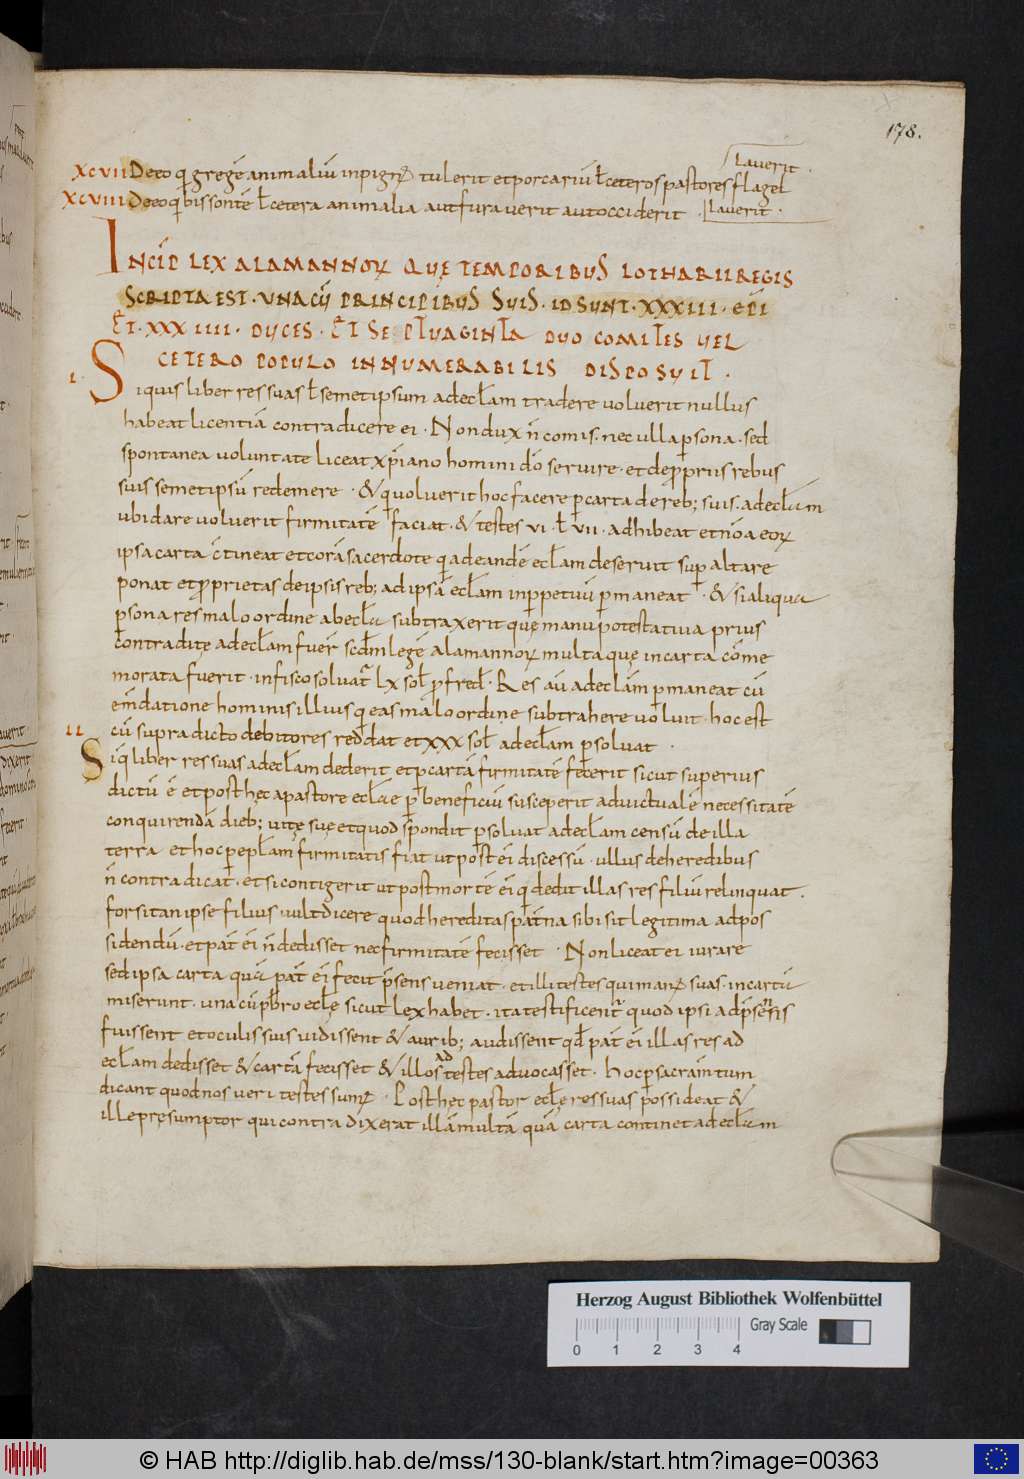 178.
lauerit.
XCVII De eo q̇ gregē animaliū inpigṅ tulerit et porcariū ł ceteros pastores flagel
XCVIII De eo q̇ bissontē ł cetera animalia aut furauerit aut occiderit. lauerit.
INCIP̄ LEX ALAMANNOꝜ QUĘ TEMPORIBUS LOTHARII REGIS
SCRIPTA EST. UNA CŪ PRINCIPIBUS SUIS. ID SUNT. XXXIII. EP̄I
ET. XXXIIII. DUCES. ET SEPTUAGINTA DUO COMITES UEL
CETERO POPULO INNUMERABILIS DISPOSUIT.
I. Siquis liber res suas ł semetipsum ad ecłam tradere uoluerit nullus
habeat licentiā contradicere ei. Non dux n̄ comis. nec ulla ꝑsona. sed
spontanea uoluntate liceat xp̄iano homini dō seruire. et de ꝓpriis rebus
suis semetipsū redemere. & q uoluerit hoc facere ꝑ carta de reb; suis. ad ecłam
ubi dare uoluerit firmitatē faciat. & testes VI. ł VII. adhibeat et nōa eoꝝ
ipsa carta c̄tineat et corā sacerdote q ad eandē ecłam deseruit sup altare
ponat et ꝓprietas de ipsis reb; ad ipsā ecłam inꝑpetuū ꝑmaneat. & si aliqua
ꝑsona res malo ordine ab ecła subtraxerit quę manu potestatiua prius
contraditę ad ecłam fuer̄ scdm̄ legē alamannoꝝ multa quę in carta cōme
morata fuerit. in fisco soluat̄ LX soł ꝓ fred. Res aū ad ecłam ꝑmaneat cū
em̄datione hominis illius q eas malo ordine subtrahere uoluit. hoc est
II cū supradicto debitores reddat et XXX soł ad ecłam ꝑsoluat.
Siq̇ liber res suas ad ecłam dederit et ꝑ cartā firmitatē fecerit sicut superius
dictū ē et post hęc a pastore ecłae ꝑ beneficiū susceperit ad uictualē necessitatē
conquirendā dieb; uitę suę et quod spondit ꝑsoluat ad ecłam censū de illa
terra et hoc ꝑ epłam firmitatis fiat ut post ei̅ discessū. ullus de heredibus
n̄ contradicat. et si contigerit ut post mortē ei̅ q dedit illas res filiū relinquat.
forsitan ipse filius uult dicere quod hereditas pat̄na sibi sit legitima ad pos
sidendū. et pat̄ ei̅ n̄ dedisset nec firmitatē fecisset. Non liceat ei iurare
sed ipsa carta qua pat̄ ei̅ fecit p̄sens ueniat. et illi testes qui man; suas. in carta
miserunt. una cū p̄bro ecłe sicut lex habet. ita testificent̄ quod ipsi ad p̄sentis
fuissent et oculis suis uidissent & aurib; audissent qd̄ pat̄ ei̅ illas res ad
ecłam dedisset & cartā fecisset & illos ad testes aduocasset. hoc ꝑ sacram̄tum
dicant quod nos ueri testes sumꝰ. Post hęc pastor ecłe res suas possideat &
ille pręsumptor qui contradixerat illā multā quā carta continet ad ecłam
Herzog August Bibliothek Wolfenbüttel
Gray Scale
0 1 2 3 4
© HAB http://diglib.hab.de/mss/130-blank/start.htm?image=00363